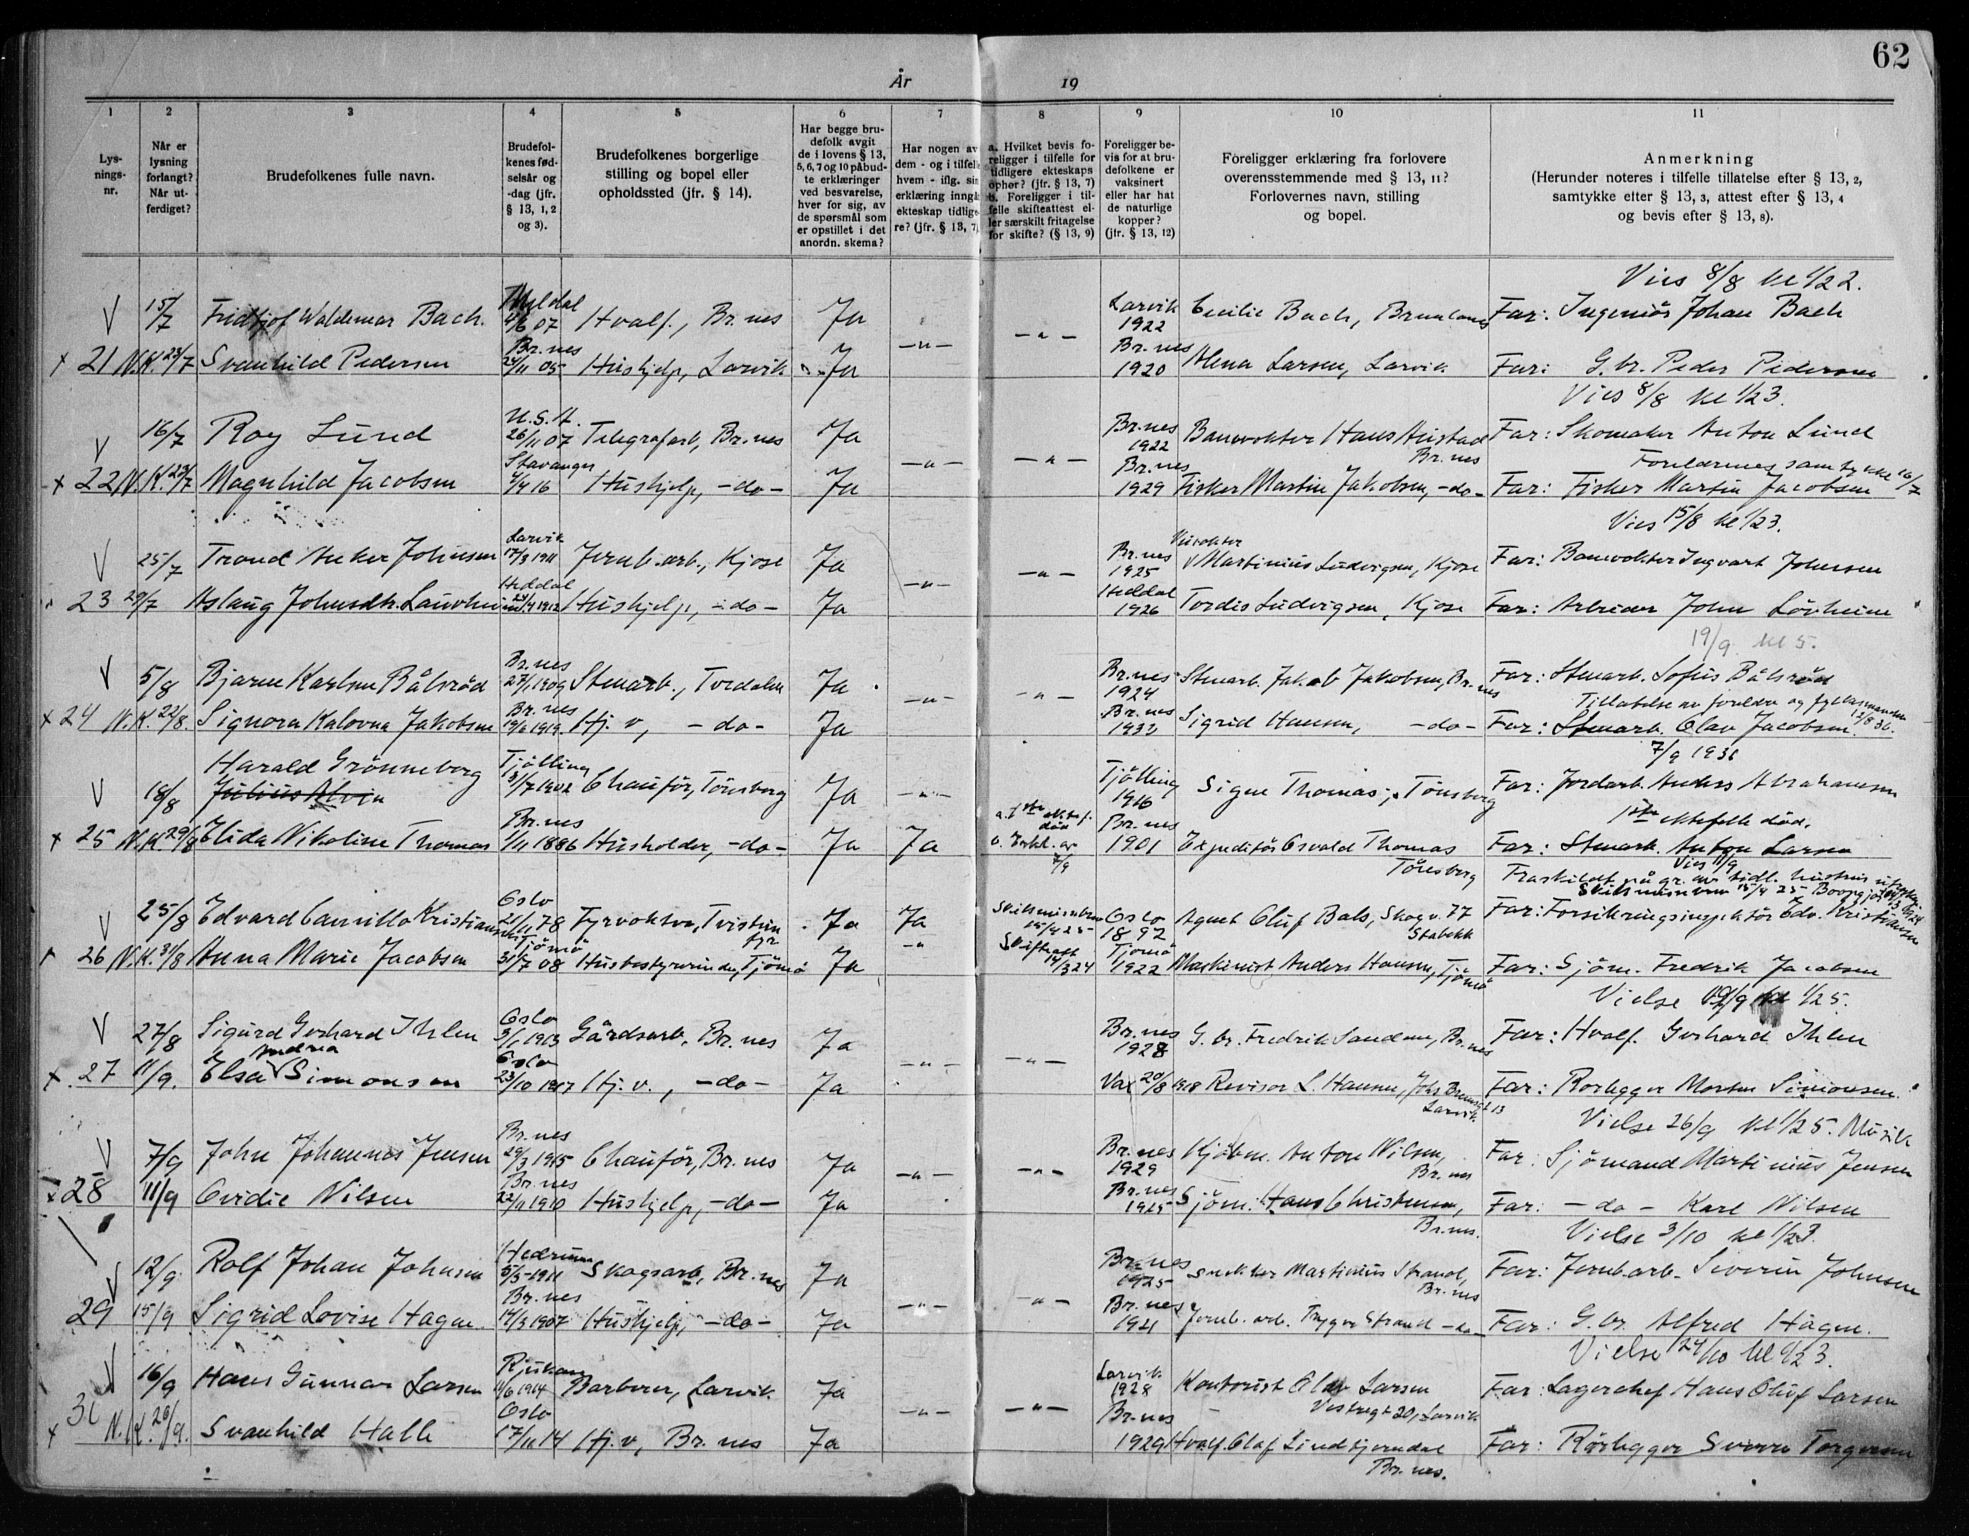 62
År 19
1 2 3 4 5 6 7 8 9 10 11
Lys-
nings-
nr.
Når er
lysning
forlangt?
Når ut-
ferdiget?
Brudefolkenes fulle navn.
Brudefol-
kenes fød-
selsår og
-dag (jfr.
§ 13, 1, 2
og 3).
Brudefolkenes borgerlige
stilling og bopel eller
opholdssted (jfr. § 14).
Har begge bru-
defolk avgit
de i lovens § 13,
5, 6, 7 og 10 påbud-
te erklæringer
ved besvarelse,
hver for sig, av
de spørsmål som
er opstillet i det
anordn. skema?
Har nogen av
dem - og i tilfelle
hvem - iflg. sin
erklæring inngått
ekteskap tidlige-
re? (jfr. § 13, 7)
a. Hvilket bevis fo-
religger i tilfelle for
tidligere ekteskaps
ophør? (jfr. § 13, 7)
b. Foreligger i til-
felle skifteattest el-
ler særskilt fritagelse
for skifte? (§ 13, 9)
Foreligger be-
vis for at bru-
defolkene er
vaksinert
eller har hat
de naturlige
kopper?
(jfr. § 13, 12)
Foreligger erklæring fra forlovere
overensstemmende med § 13, 11?
Forlovernes navn, stilling
og bopel.
Anmerkning
(Herunder noteres i tilfelle tillatelse efter § 13, 2,
samtykke efter § 13, 3, attest efter § 13, 4
og bevis efter § 13, 8).
Vies 8/8 kl 1/2 2.
V 15/7 Fridtjof Waldemar Bach. 4/6 07 Hvalf., Br.nes Ja Larvik 1922 Cecilie Bach, Brunlanes Far: Ingeniör Johan Bach
x 21 N.K. 23/7 Svanhild Pedersen Br.nes 24/11 05 Hushjelp, Larvik Ja —"— —"— Br.nes 1920 Alma Larsen, Larvik Far: G.br. Peder Pedersen
Vies 8/8 kl 1/2 3.
V 16/7 Roy Lund U.S.A. 26/11 07 Telegrafarb, Br.nes Ja Br.nes 1922 Banevokter Hans Austad Br.nes Far: Skomaker Anton Lund
Foreldrenes samtykke 16/7
x 22 N.K. 23/7 Magnhild Jacobsen Stavanger 4/4 16 Hushjelp, -do- Ja —"— —"— Br.nes 1929 Fisker Martin Jakobsen, -do- Far: Fisker Martin Jacobsen
Vies 15/8 kl 1/2 3.
V 25/7 Trond Anker Johnsen Larvik 17/3 1911 Jernb.arb., Kjose Ja Br.nes 1925 Martinius Ludvigsen, Kjose Far: Banevokter Ingvart Johnsen
23 29/7 Aslaug Johnsdtr. Lauvheim Heddal 24/4 1912 Hushjelp, -do- Ja —"— —"— Heddal 1926 Tordis Ludvigsen, Kjose Far: Arbeider John Lövheim
19/9 kl 5.
V 5/8 Bjarne Karlsen Bålsröd Br.nes 27/1 1909 Stenarb., Tvedalen Ja Br.nes 1924 Stenarb. Jakob Jakobsen, Br.nes Far: Stenarb. Sofus Bålsröd
Tillatelse av foreldre og fylkesmannen 12/8 36.
x 24 N.K. 22/8. Signora Kalovna Jakobsen Br.nes 19/6 1919. Hj.v, -do- Ja —"— —"— Br.nes 1932 Sigrid Hansen, -do- Far: Stenarb. Olav Jacobsen.
7/9 1936
V 18/8 Harald Grönneberg Tjölling 3/7 1902 Chauför, Tönsberg Ja —"— Tjölling 1916 Signe Thomas, Tönsberg Far: Jordarb. Anders Abrahamsen
1ste ektefelle död.
x 25 N.K. 29/8 Elida Nikoline Thomas Br.nes 1/11 1886 Husholder, -do- Ja Ja Br.nes 1901 Expeditör Osvald Thomas Tönsberg Far: Stenarb. Anton Larsen
Vies 11/9
V 25/8 Edvard Camillo Kristiansen Oslo 21/11 78 Fyrvokter, Tvistein fyr Ja Ja Skilsmissebev 15/4 25 Oslo 1892 Agent Oluf Bals, Skogv. 77 Stabekk Far: Forsikringsinspektör Edv. Kristiansen
26 N.K. 31/8 Anna Marie Jacobsen Tjömö 31/7 08 Husbestyrerinde, Tjömö Ja —"— Skifteatt 14/3 24 Tjömö 1922 Maskinist Anders Hansen, Tjömö Far: Sjöm. Fredrik Jacobsen
Vielse 19/9 kl 1/2 5.
V 27/8 Sigurd Gerhard Ihlen Oslo 3/1 1913 Gårdsarb, Br.nes Ja Br.nes 1928 G.br. Fredrik Sandnes, Br.nes Far: Hvalf. Gerhard Ihlen
x 27 11/9. Elsa Andrea Simonsen Oslo 23/10 1917 Hj.v., -do- Ja —"— —"— Vax 20/8 1918 Revisor L. Hansen, Larvik Far: Rörlegger Morten Simonsen.
Vielse 26/9 kl 1/2 5. Musik
V 7/9 John Johannes Jensen Br.nes 29/3 1915 Chauför, Br.nes Ja Br.nes 1929 Kjöbm. Anton Nilsen, Br.nes Far: Sjömand Martinius Jensen
x 28 11/9 Ovidie Nilsen Br.nes 22/11 1910 Hushjelp, -do- Ja —"— —"— Br.nes 1925 Sjöm. Hans Christensen, Br.nes. Far: -do- Karl Nilsen
Vielse 3/10 kl 1/2 3.
V 12/9 Rolf Johan Johnsen Hedrum 5/5-1911 Skogsarb, Br.nes Ja Br.nes 1925 Snekker Martinius Strand, Br.nes Far: Jernb.arb. Severin Johnsen
29 15/9 Sigrid Lovise Hagen Br.nes 14/3 1907 Hushjelp, -do- Ja —"— —"— Br.nes 1921 Jernb. arb. Trygve Strand -do- Far: G.br. Alfred Hagen.
Vielse 24/10 kl 1/2 3.
V 16/9 Hans Gunnar Larsen Rjukan 11/6 1914 Barberer, Larvik Ja Larvik 1928 Kontorist Olav Larsen Vestregt 20, Larvik Far: Lagerchef Hans Oluf Larsen
x 30 N.K. 26/9. Svanhild Halle Oslo 17/11 14 Hj.v, Br.nes Ja —"— —"— Br.nes 1929 Hvalf. Olaf Lindbjerndal Br.nes. Far: Rörlegger Sverre Torgersen